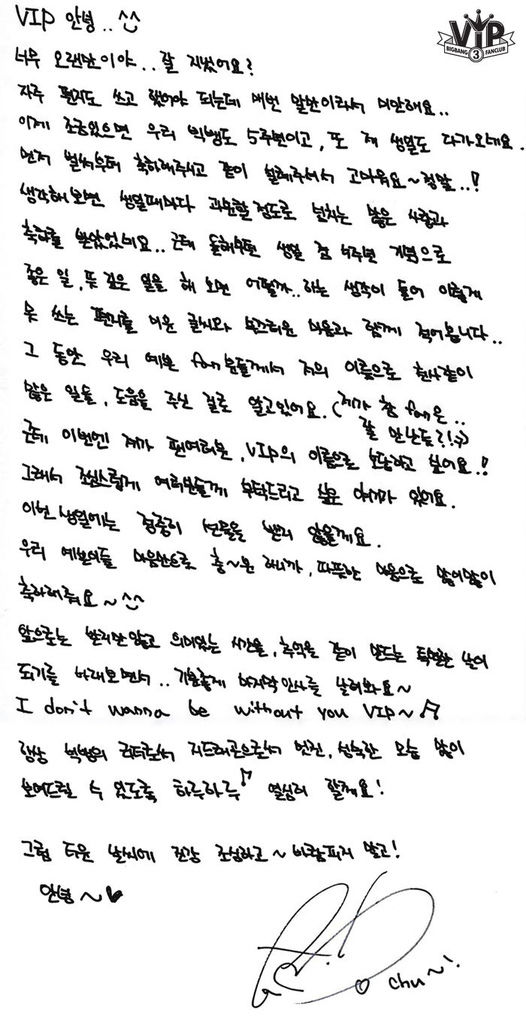 ViP
BIGBANG 3 FANCLUB
VIP 안녕.. ^^
너무 오랜만이야.. 잘 지냈어요?
자주 편지도 쓰고 했어야 되는데 매번 말만이라서 미안해요..
이제 조금있으면 우리 빅뱅도 5주년이고, 또 제 생일도 다가오네요.
먼저 벌써부터 축하해주시고 같이 설레주셔서 고마워요~ 정말..!
생각해보면 생일때마다 과분할정도로 넘치는 많은 사랑과
축하를 받았었네요.. 근데 올해부턴 생일 겸 5주년 기념으로
좋은 일, 뜻 깊은 일을 해 보면 어떨까..하는 생각이 들어 이렇게
못 쓰는 편지를 미운 글씨와 부끄러운 마음과 함께 적어봅니다..
그 동안 우리 예쁜 fan분들께서 저의 이름으로 천사같이
많은 일들, 도움을 주신 걸로 알고있어요. (제가 참 fan은..
잘 만난듯?! :))
근데 이번엔 제가 팬여러분, VIP의 이름으로 보답하고 싶어요!!
그래서 조심스럽게 여러분들께 부탁드리고 싶은 얘기가 있어요.
이번 생일에는 정중히 선물을 받지 않을게요.
우리 예쁜이들 마음만으로 충~분 하니까, 따뜻한 마음으로 많이많이
축하해줘요~ ^^
앞으로는 받지만 않고 의미있는 시간을, 추억을 같이 만드는 특별한 날이
되기를 바래보면서.. 기분좋게 마지막 인사를 날려봐요~
I don't wanna be without you VIP~♬
항상 빅뱅의 리더로서 지드래곤으로서 멋진, 성숙한 모습 많이
보여드릴 수 있도록 하루하루♪ 열심히 할게요!
그럼 더운 날씨에 건강 조심하고~ 바람피지 말고!
안녕~♥
chu~!